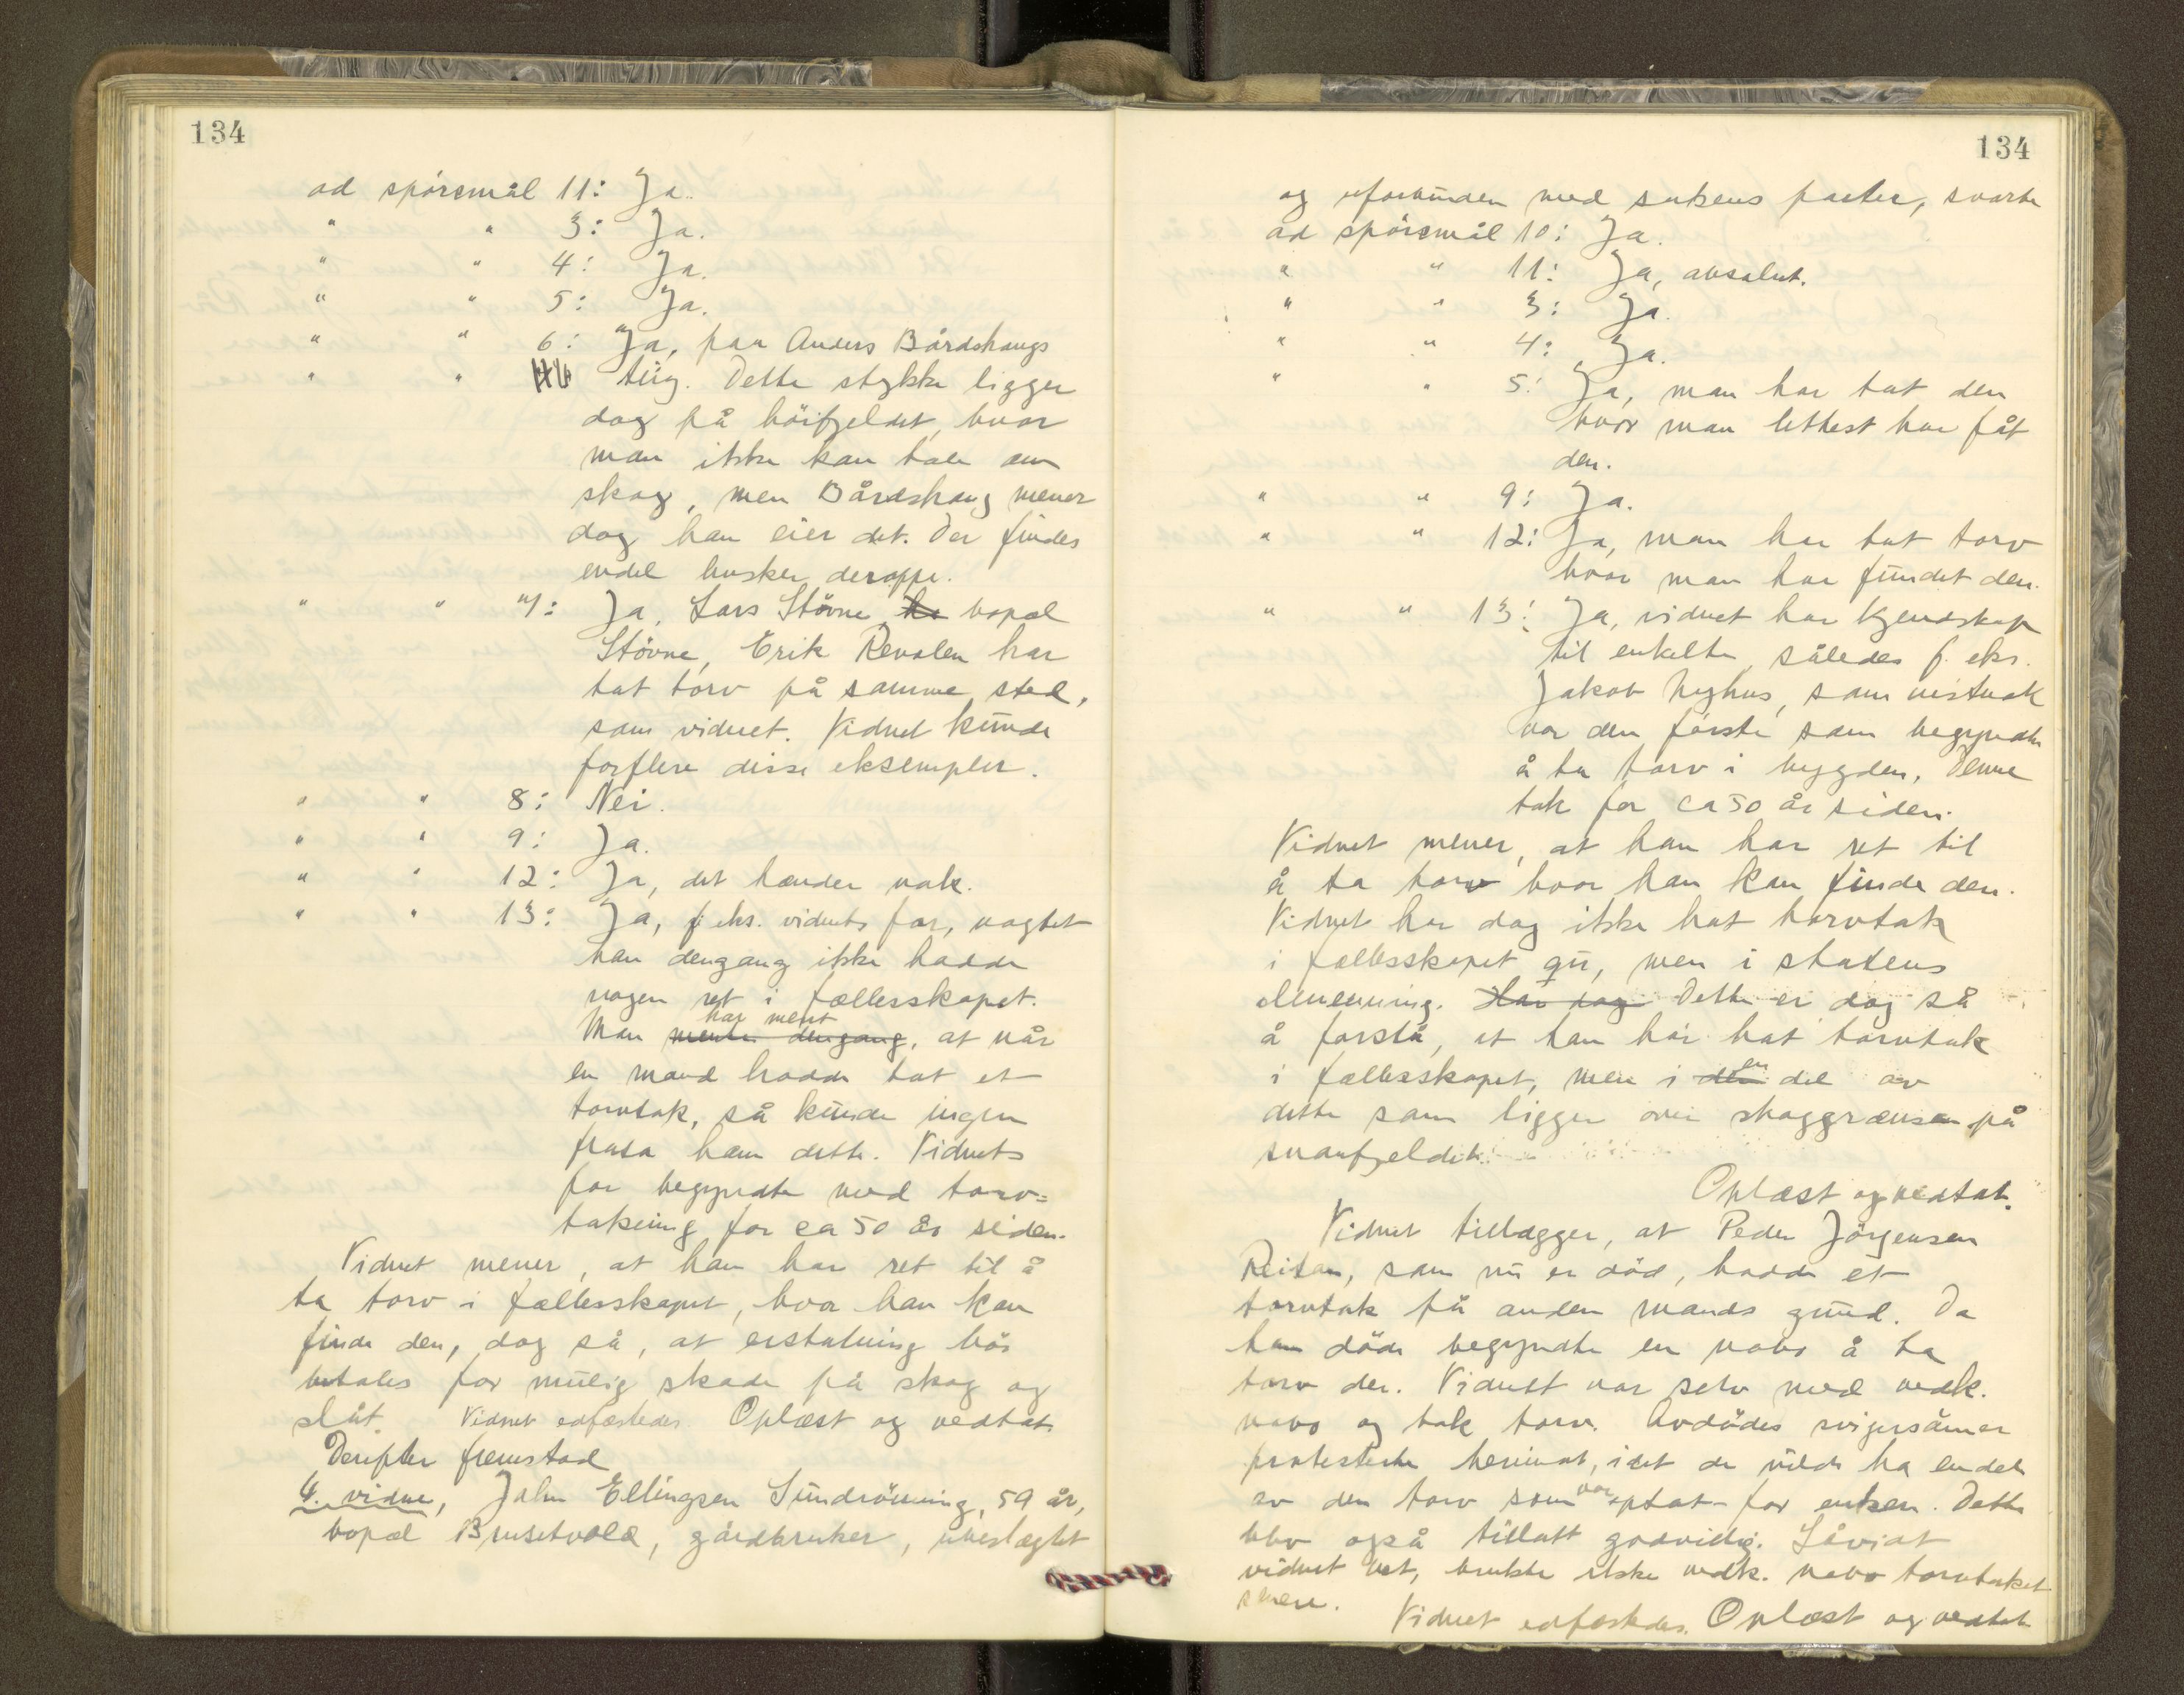 134
ad spörsmål 11: Ja.
" " 3: Ja.
" " 4: Ja.
" " 5: Ja.
" " 6: Ja, paa Anders Bårdshaugs
" " teig. Dette stykke ligger
dog på höifjeldet, hvor
man ikke kan tale om
skog, men Bårdshaug mener
dog han eier det. Der findes
endel busker deroppe.
" " 7: Ja, Lars Stövne, bopæl
Stövne, Erik Revolen har
tat torv på samme sted,
som vidnet. Vidnet kunde
forflere disse eksempler.
" " 8: Nei.
" " 9: Ja.
" " 12: Ja, det hænder nok.
" " 13: Ja, f. eks. vidnets far, uagtet
han dengang ikke hadde
nogen ret i fællesskapet.
har ment
Man mente dengang, at når
en mand hadde tat et
torvtak, så kunde ingen
frata ham dette. Vidnets
far begyndte med torv=
taking for ca 50 år siden.
Vidnet mener, at han har ret til å
ta torv i fællesskapet, hvor han kan
finde den, dog så, at erstatning bör
betales for mulig skade på skog og
slåt. Vidnet edfæstedes. Oplæst og vedtat.
Derefter fremstod
4. vidne, John Ellingsen Sundrönning, 59 år,
bopæl Brusetvold, gårdbruker, ubeslægtet
134
og uforbunden med sakens parter, svarte
ad spörsmål 10: Ja.
" " 11: Ja, absolut.
" " 3: Ja.
" " 4: Ja.
" " 5: Ja, man har tat den
hvor man lettest har fåt
den.
" " 9: Ja.
" " 12: Ja, man har tat torv
hvor man har fundet den.
" " 13: Ja, vidnet har kjendskap
til enkelte, således f. eks.
Jakob Nyhus, som nistnok
var den förste som begyndte
å ta torv i bygden. Denne
tok for ca 50 år siden.
Vidnet mener, at han har ret til
å ta torv hvor han kan finde den.
Vidnet har dog ikke hat torvtak
i fællesskapet gu, men i statens
almenning. Har dog Dette er dog så
å forstå, at han har hat torvtak
i fællesskapet, men i den en del av
dette som ligger over skoggrænsen på
snaufjeldet.
Oplæst og vedtat.
Vidnet tillægger, at Peder Jörgensen
Reitan, som nu er död, hadde et
torvtak på anden mands grund. Da
han döde begyndte en nabo å ta
torv der. Vidnet var selv med vedk.
nabo og tok torv. Avdödes svigersönner
protesterte herimot, idet de vilde ha endel
av den torv som var optat for enken. Dette
blev også tillatt godvillig. Såvidt
vidnet vet, brukte ikke vedk. nabo torvtaket
mere.
Vidnet edfæstedes. Oplæst og vedtat